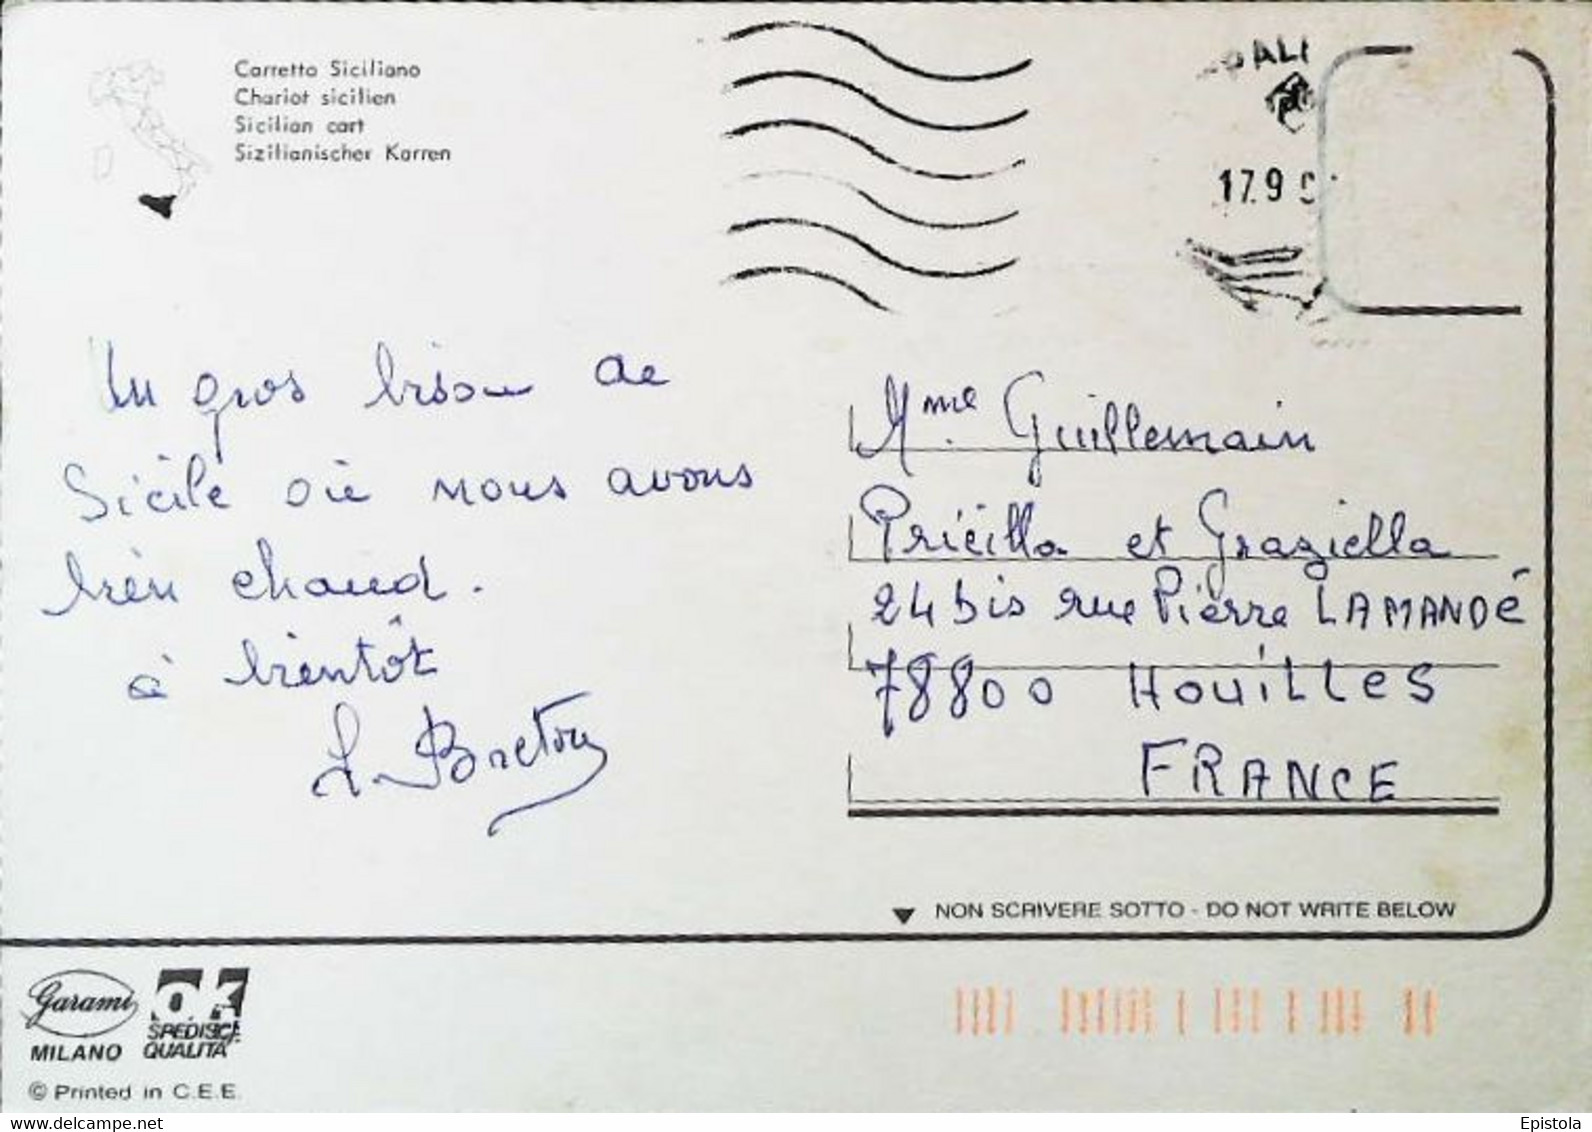 Carretto Siciliano
Chariot sicilien
Sicilian cart
Sizilianischer Karren
17.9
Un gros bisou de
Sicile où nous avons
bien chaud.
à bientôt
Breton
Mme Guillemain
Pricilla et Graziella
24 bis rue Pierre LAMANDé
78800 HOUILLES
FRANCE
NON SCRIVERE SOTTO - DO NOT WRITE BELOW
Garami
MILANO
OK
SPEDISCI
QUALITA'
© Printed in C.E.E.
delcampe.net
Epistola